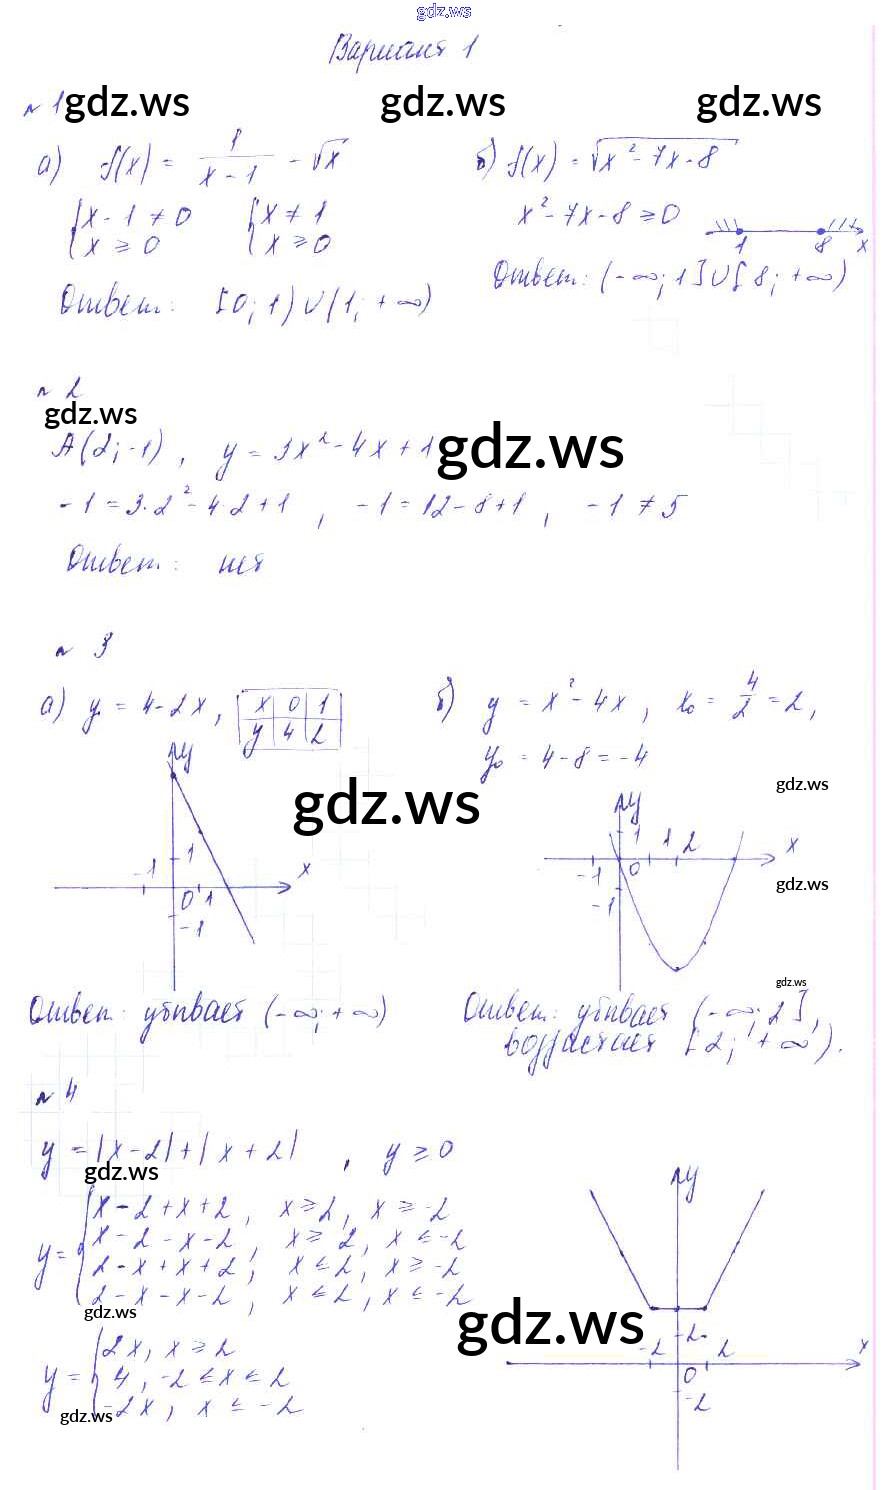 gdz.ws
Вариант 1
№ 1 gdz.ws gdz.ws gdz.ws
а) f(x) = 1/(x - 1) - √x
{x - 1 ≠ 0 {x ≠ 1
{x ≥ 0 {x ≥ 0
Ответ: [0; 1) ∪ (1; +∞)
б) f(x) = √(x² - 7x - 8)
x² - 7x - 8 ≥ 0
1 8 x
Ответ: (-∞; 1] ∪ [8; +∞)
№ 2
gdz.ws
A(2; -1), y = 3x² - 4x + 1
gdz.ws
-1 = 3·2² - 4·2 + 1, -1 = 12 - 8 + 1, -1 ≠ 5
Ответ: нет
№ 3
а) y = 4 - 2x, x 0 1
y 4 2
y
-1 1 x
0 1
-1
Ответ: убывает (-∞; +∞)
gdz.ws
б) y = x² - 4x, x₀ = 4/2 = 2,
y₀ = 4 - 8 = -4
gdz.ws
y
1 1 2 x
-1 0
-1
gdz.ws
gdz.ws
Ответ: убывает (-∞; 2],
возрастает [2; +∞).
№ 4
y = |x - 2| + |x + 2|, y ≥ 0
gdz.ws
y = {x - 2 + x + 2, x ≥ 2, x ≥ -2
x - 2 - x - 2, x ≥ 2, x ≤ -2
2 - x + x + 2, x ≤ 2, x ≥ -2
2 - x - x - 2, x ≤ 2, x ≤ -2
gdz.ws
gdz.ws
y = {2x, x ≥ 2
4, -2 ≤ x ≤ 2
-2x, x ≤ -2
gdz.ws
y
-2 2 2 x
0
-2